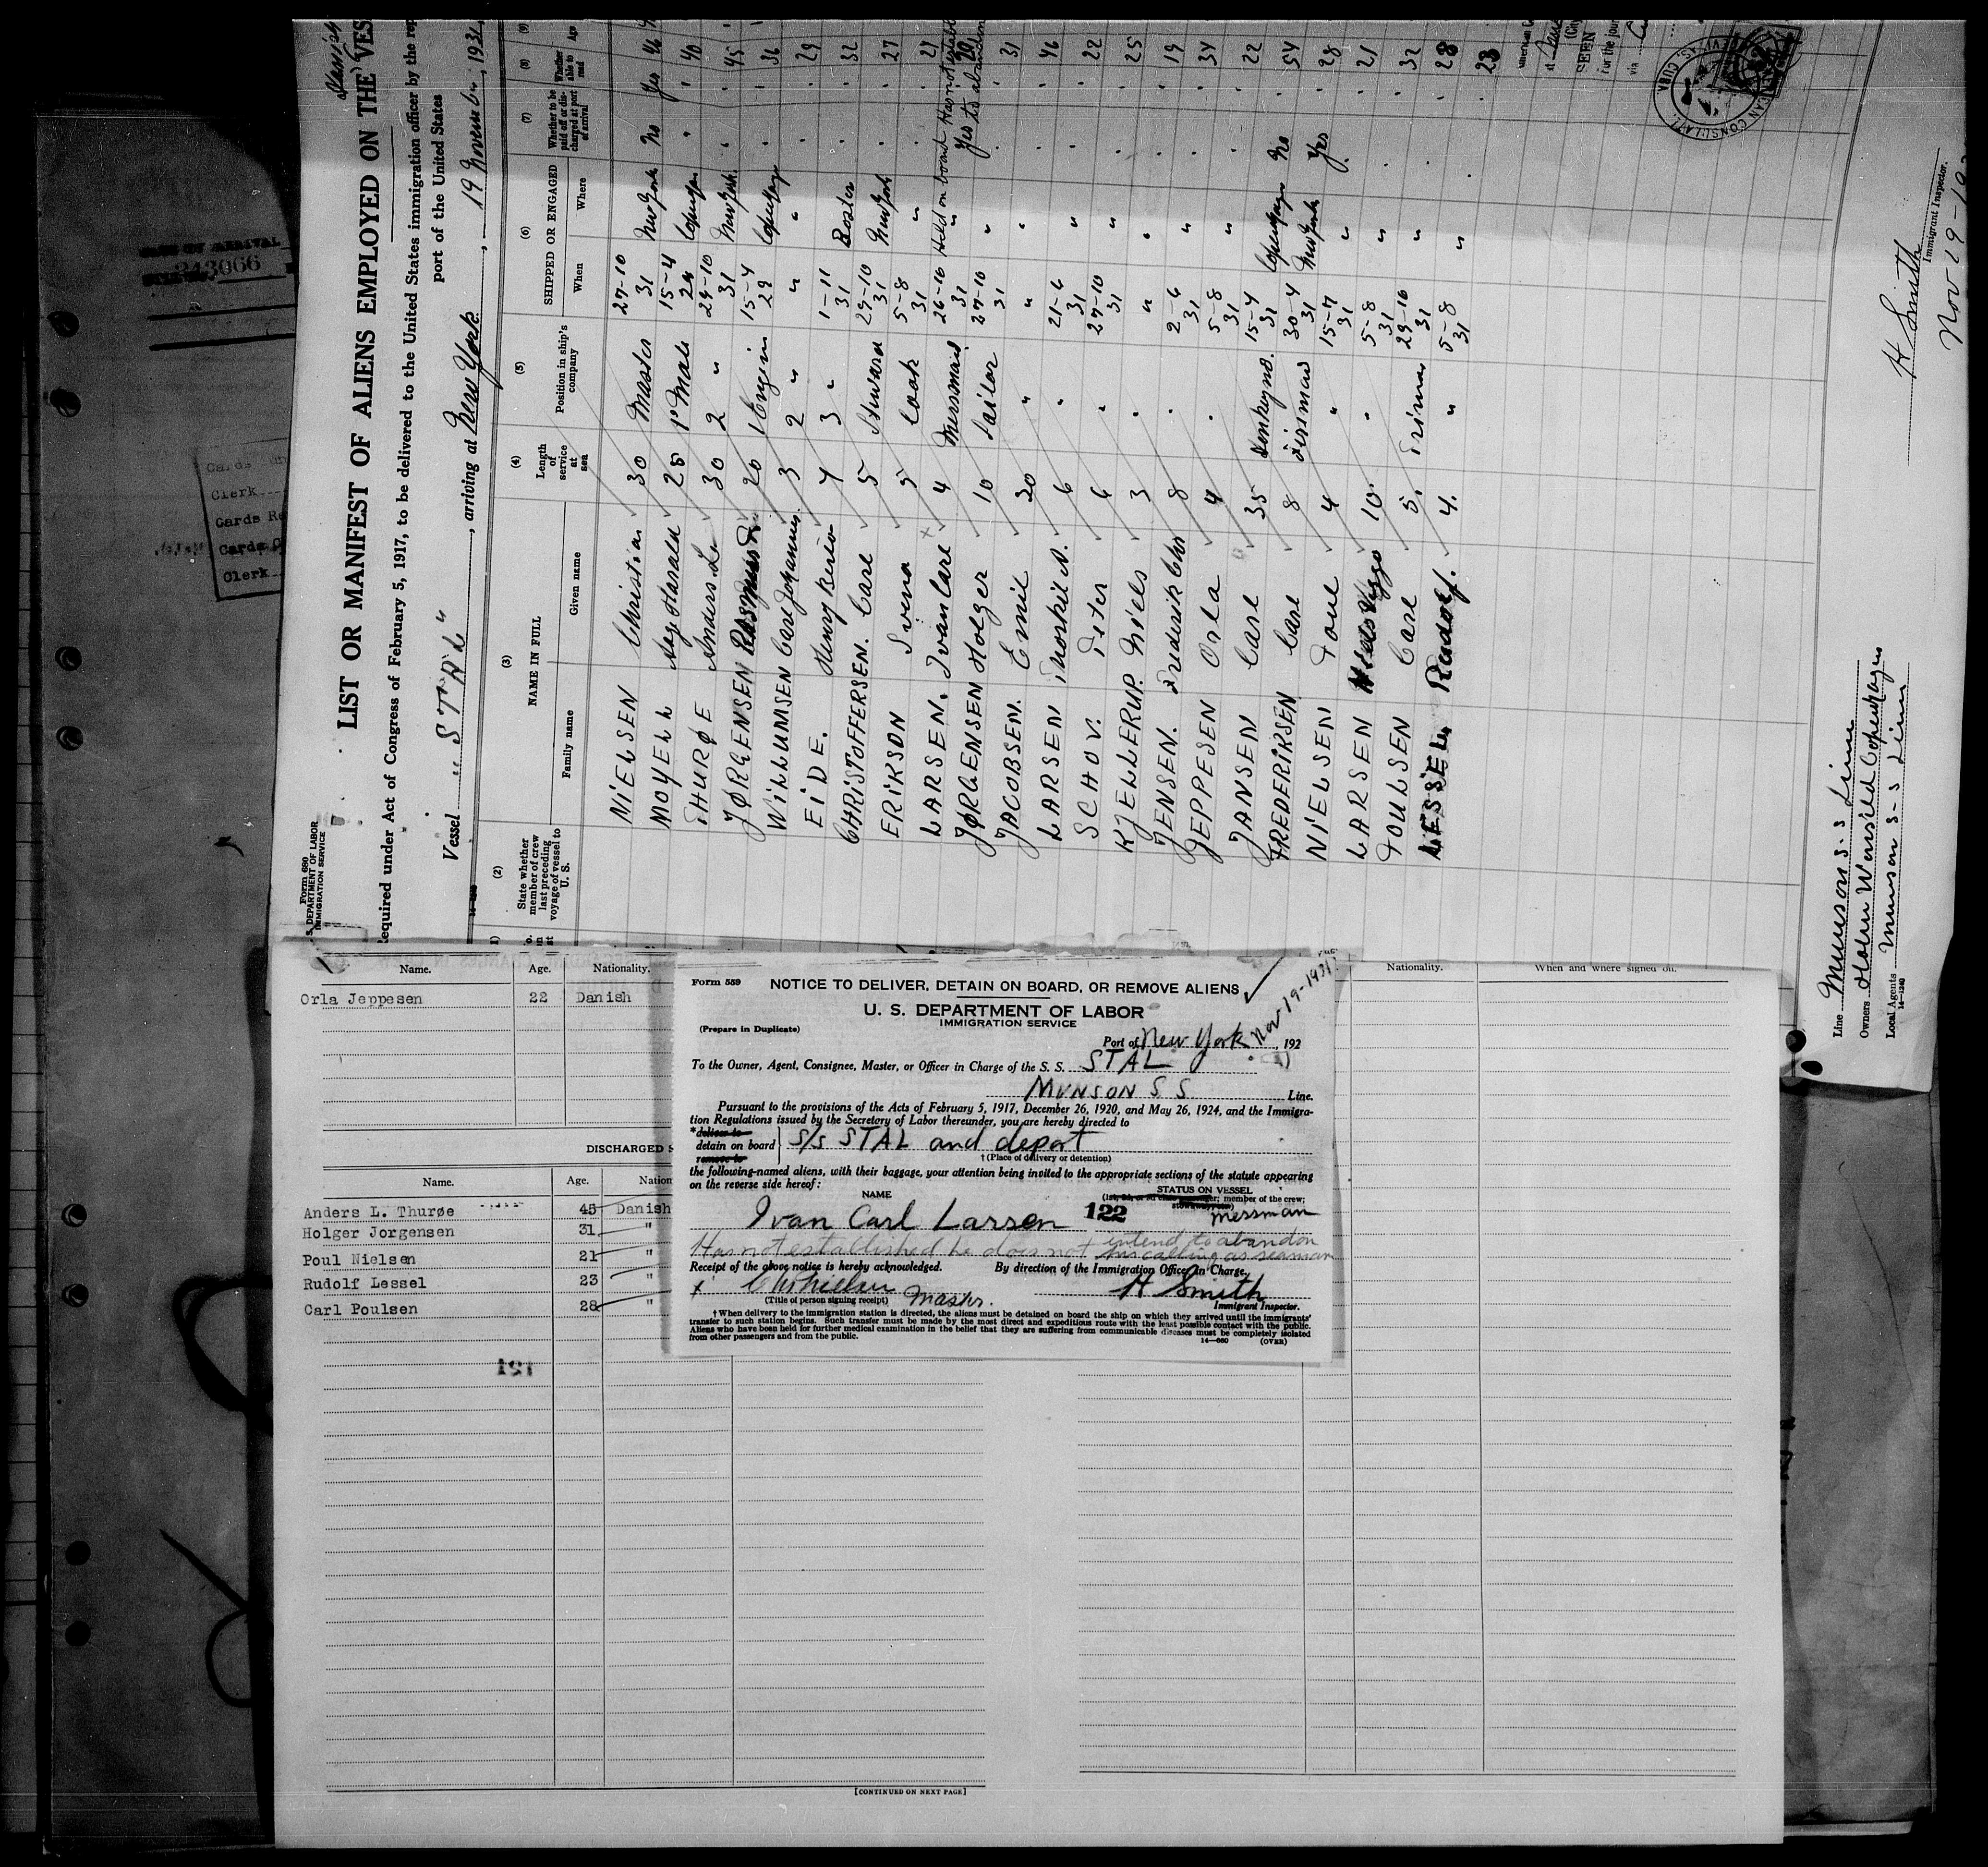 Form 680
S. DEPARTMENT OF LABOR
IMMIGRATION SERVICE
LIST OR MANIFEST OF ALIENS EMPLOYED ON THE VES
Required under Act of Congress of February 5, 1917, to be delivered to the United States immigration officer by the rep
port of the United States
Vessel "STAL", arriving at New York, 19 November, 1931
(2)
State whether member of crew last preceding voyage of vessel to U. S.
(3)
NAME IN FULL
Family name
Given name
(4)
Length of service at sea
(5)
Position in ship's company
(6)
SHIPPED OR ENGAGED
When
Where
(7)
Whether to be paid off or discharged at port of arrival
(8)
Whether able to read
(9)
Age
NIELSEN Christian 30 Master 27-10 31 New York No Yes 46
MOYELL Aage Harald 25 1' Mate 15-4 29 Copenhagen " " 40
THURØE Anders L. 30 2 " 29-10 31 New York " " 45
JØRGENSEN Rasmus 20 1 Engin 15-4 29 Copenhagen " " 36
WILLUMSEN Carl Johannes 3 2 " " " " " 29
EIDE. Henry 7 3 " 1-11 31 Boston " " 32
CHRISTOFFERSEN. Carl 5 Steward 29-10 31 New York " " 27
ERIKSON Svend 5 Cook 5-8 31 " " " 21
LARSEN. Ivan Carl 4 Messman 26-10 31 " Held on board Has not establ 20
JØRGENSEN Holger 10 Sailor 27-10 31 " Yes to abandon 31
JACOBSEN. Emil 30 " " " " " 46
LARSEN Thorkil A. 6 " 21-6 31 " " " 22
SCHOV. Peter 6 " 27-10 31 " " " 25
KJELLERUP. Niels 3 " " " " " 19
JENSEN. Frederik Chr 8 " 2-6 31 " " " 34
JEPPESEN Orla 4 " 5-8 31 " " " 22
JANSEN Carl 35 Donkeymd. 15-4 31 Copenhagen No " 54
FREDERIKSEN Carl 8 Firman 30-4 31 New York Yes " 28
NIELSEN Poul 4 " 15-7 31 " " " 21
LARSEN Viggo 10 " 5-8 31 " " " 32
POULSEN Carl 5 Trimer 29-10 31 " " 28
LESSEL Rudolf. 4. " 5-8 31 " 23
SEEN
For the jour
via
Line Munson S. S Line
Owners Holm Wonsild Copenhagen
Local Agents Munson S-S Line
14-1240
H Smith
Immigrant Inspector.
Nov 19-19
243066
Clerk
Cards Re
Clerk
Name.
Age.
Nationality.
Orla Jeppesen 22 Danish
DISCHARGED S
Name.
Age.
Nation
Anders L. Thurøe 45 Danish
Holger Jorgensen 31 "
Poul Nielsen 21 "
Rudolf Lessel 23 "
Carl Poulsen 28 "
121
Nationality.
When and where signed on.
[CONTINUED ON NEXT PAGE]
Form 559
NOTICE TO DELIVER, DETAIN ON BOARD, OR REMOVE ALIENS
U. S. DEPARTMENT OF LABOR
IMMIGRATION SERVICE
(Prepare in Duplicate)
Nov 19-1931
Port of New York Nov, 192
To the Owner, Agent, Consignee, Master, or Officer in Charge of the S. S. STAL
MUNSON S S. Line.
Pursuant to the provisions of the Acts of February 5, 1917, December 26, 1920, and May 26, 1924, and the Immigra-
tion Regulations issued by the Secretary of Labor thereunder, you are hereby directed to
*deliver to
detain on board
remove to
S/S STAL and deport
† (Place of delivery or detention)
the following-named aliens, with their baggage, your attention being invited to the appropriate sections of the statute appearing
on the reverse side hereof:
NAME
STATUS ON VESSEL
member of the crew;
Ivan Carl Larsen 122 messman
Has not established he does not intend to abandon
his calling as seaman
Receipt of the above notice is hereby acknowledged.
By direction of the Immigration Officer in Charge.
x C Nielsen Master.
(Title of person signing receipt)
H Smith
Immigrant Inspector.
† When delivery to the immigration station is directed, the aliens must be detained on board the ship on which they arrived until the immigrants'
transfer to such station begins. Such transfer must be made by the most direct and expeditious route with the least possible contact with the public.
Aliens who have been held for further medical examination in the belief that they are suffering from communicable diseases must be completely isolated
from other passengers and from the public.
14-660
(OVER)